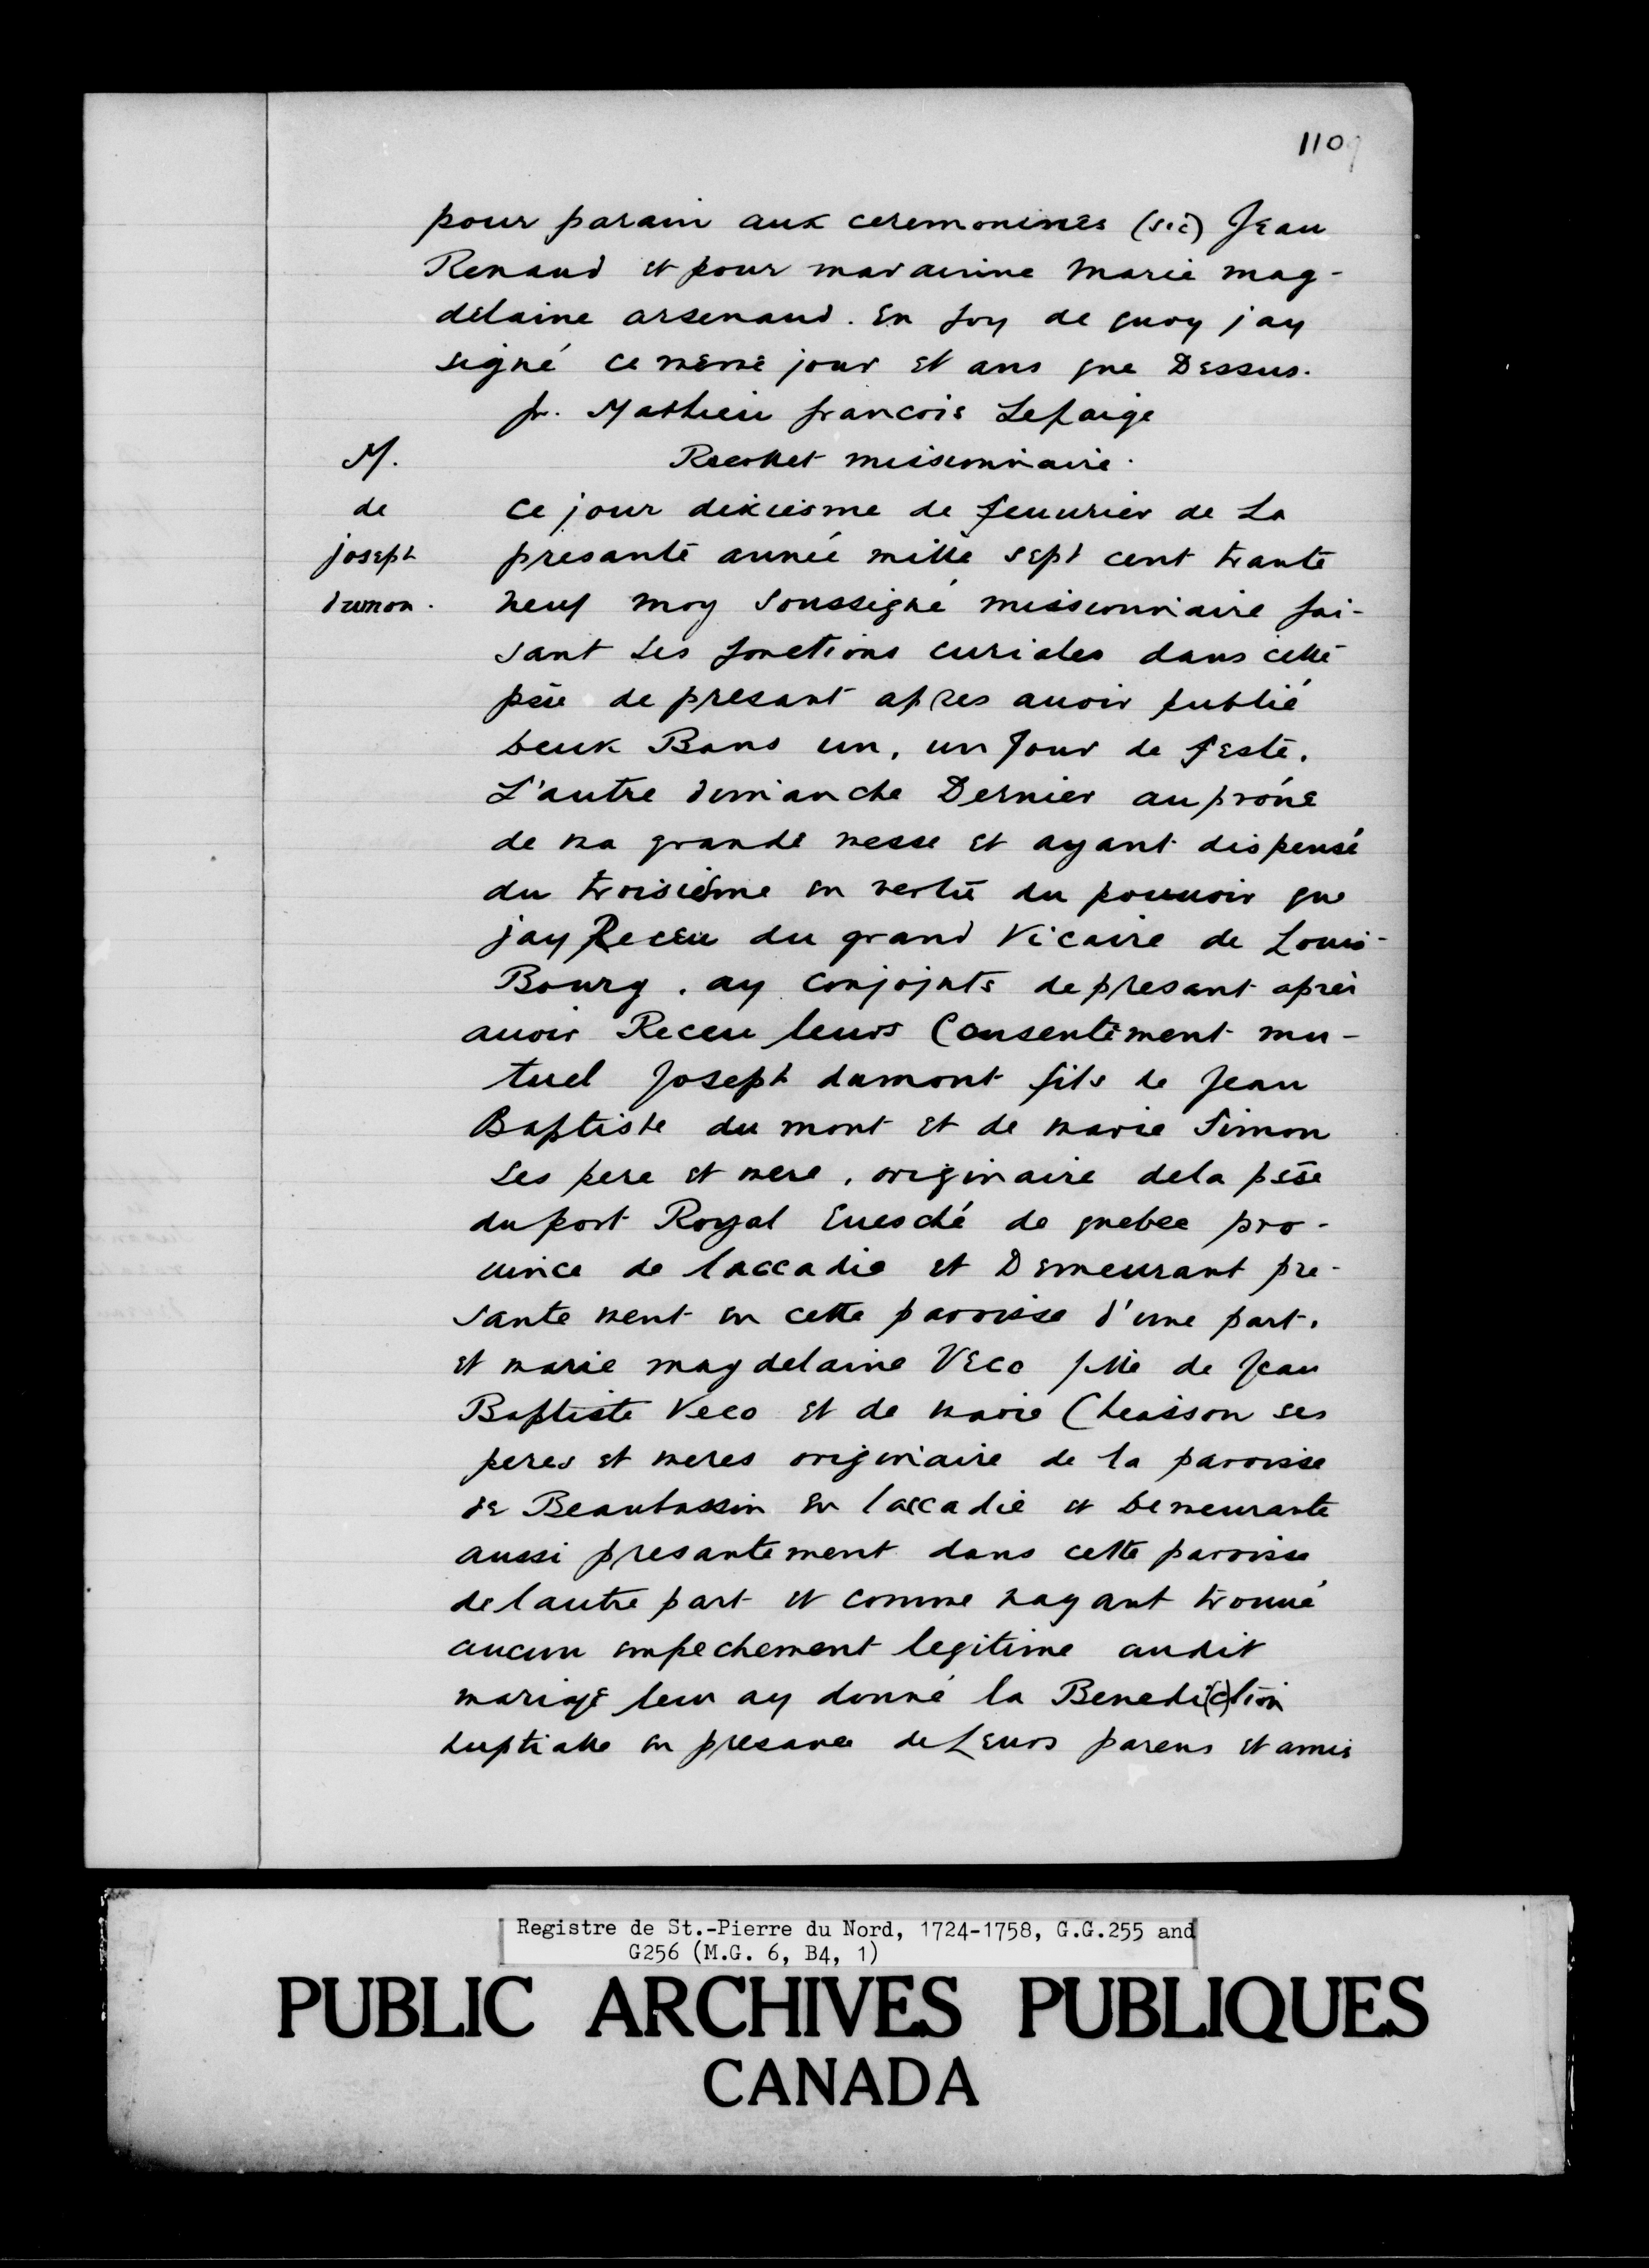 110
pour parain aux ceremonines (sic) Jean
Renaud et pour maraiine Marie mag-
delaine arsenaud. En foy de quoy jay
signé ce meme jour et ans que Dessus.
fr. Mathieu francois Lepaige
M.
Recollet missionnaire.
de
Ce jour dixiesme de feuurier de La
joseph
presante année mille sept cent trante
dumon.
neuf moy Soussigné missionnaire fai-
sant Les fonctions curiales dans cette
psse de presant apres auoir publié
Deux Bans un, un Jour de feste.
L'autre dimanche Dernier au próne
de ma grande messe et ayant dispensé
du troisiême en vertü du pouuoir que
jay Receu du grand Vicaire de Louis-
Bourg. ay conjojnts de presant aprés
auoir Receu leurs Consentement mu-
tuel Joseph dumont fils de Jean
Baptiste du mont et de marie Simon
Ses pere et mere, originaire dela psse
du port Royal Euesché de quebec pro-
uince de laccadie et Demeurant pre-
sante ment en cette paroisse d'une part.
et marie magdelaine Veco fille de Jean
Baptiste Veco et de marie Cheasson ses
peres et meres originaire de la paroisse
de Beaubassin en laccadie et Demeurante
aussi presantement dans cette paroisse
de lautre part et comme nayant trouué
aucun empechement legitime audit
mariage leur ay donné la Benedi(c)tion
nuptialle en presance de Leurs parens et amis
Registre de St.-Pierre du Nord, 1724-1758, G.G.255 and
G256 (M.G. 6, B4, 1)
PUBLIC ARCHIVES PUBLIQUES
CANADA